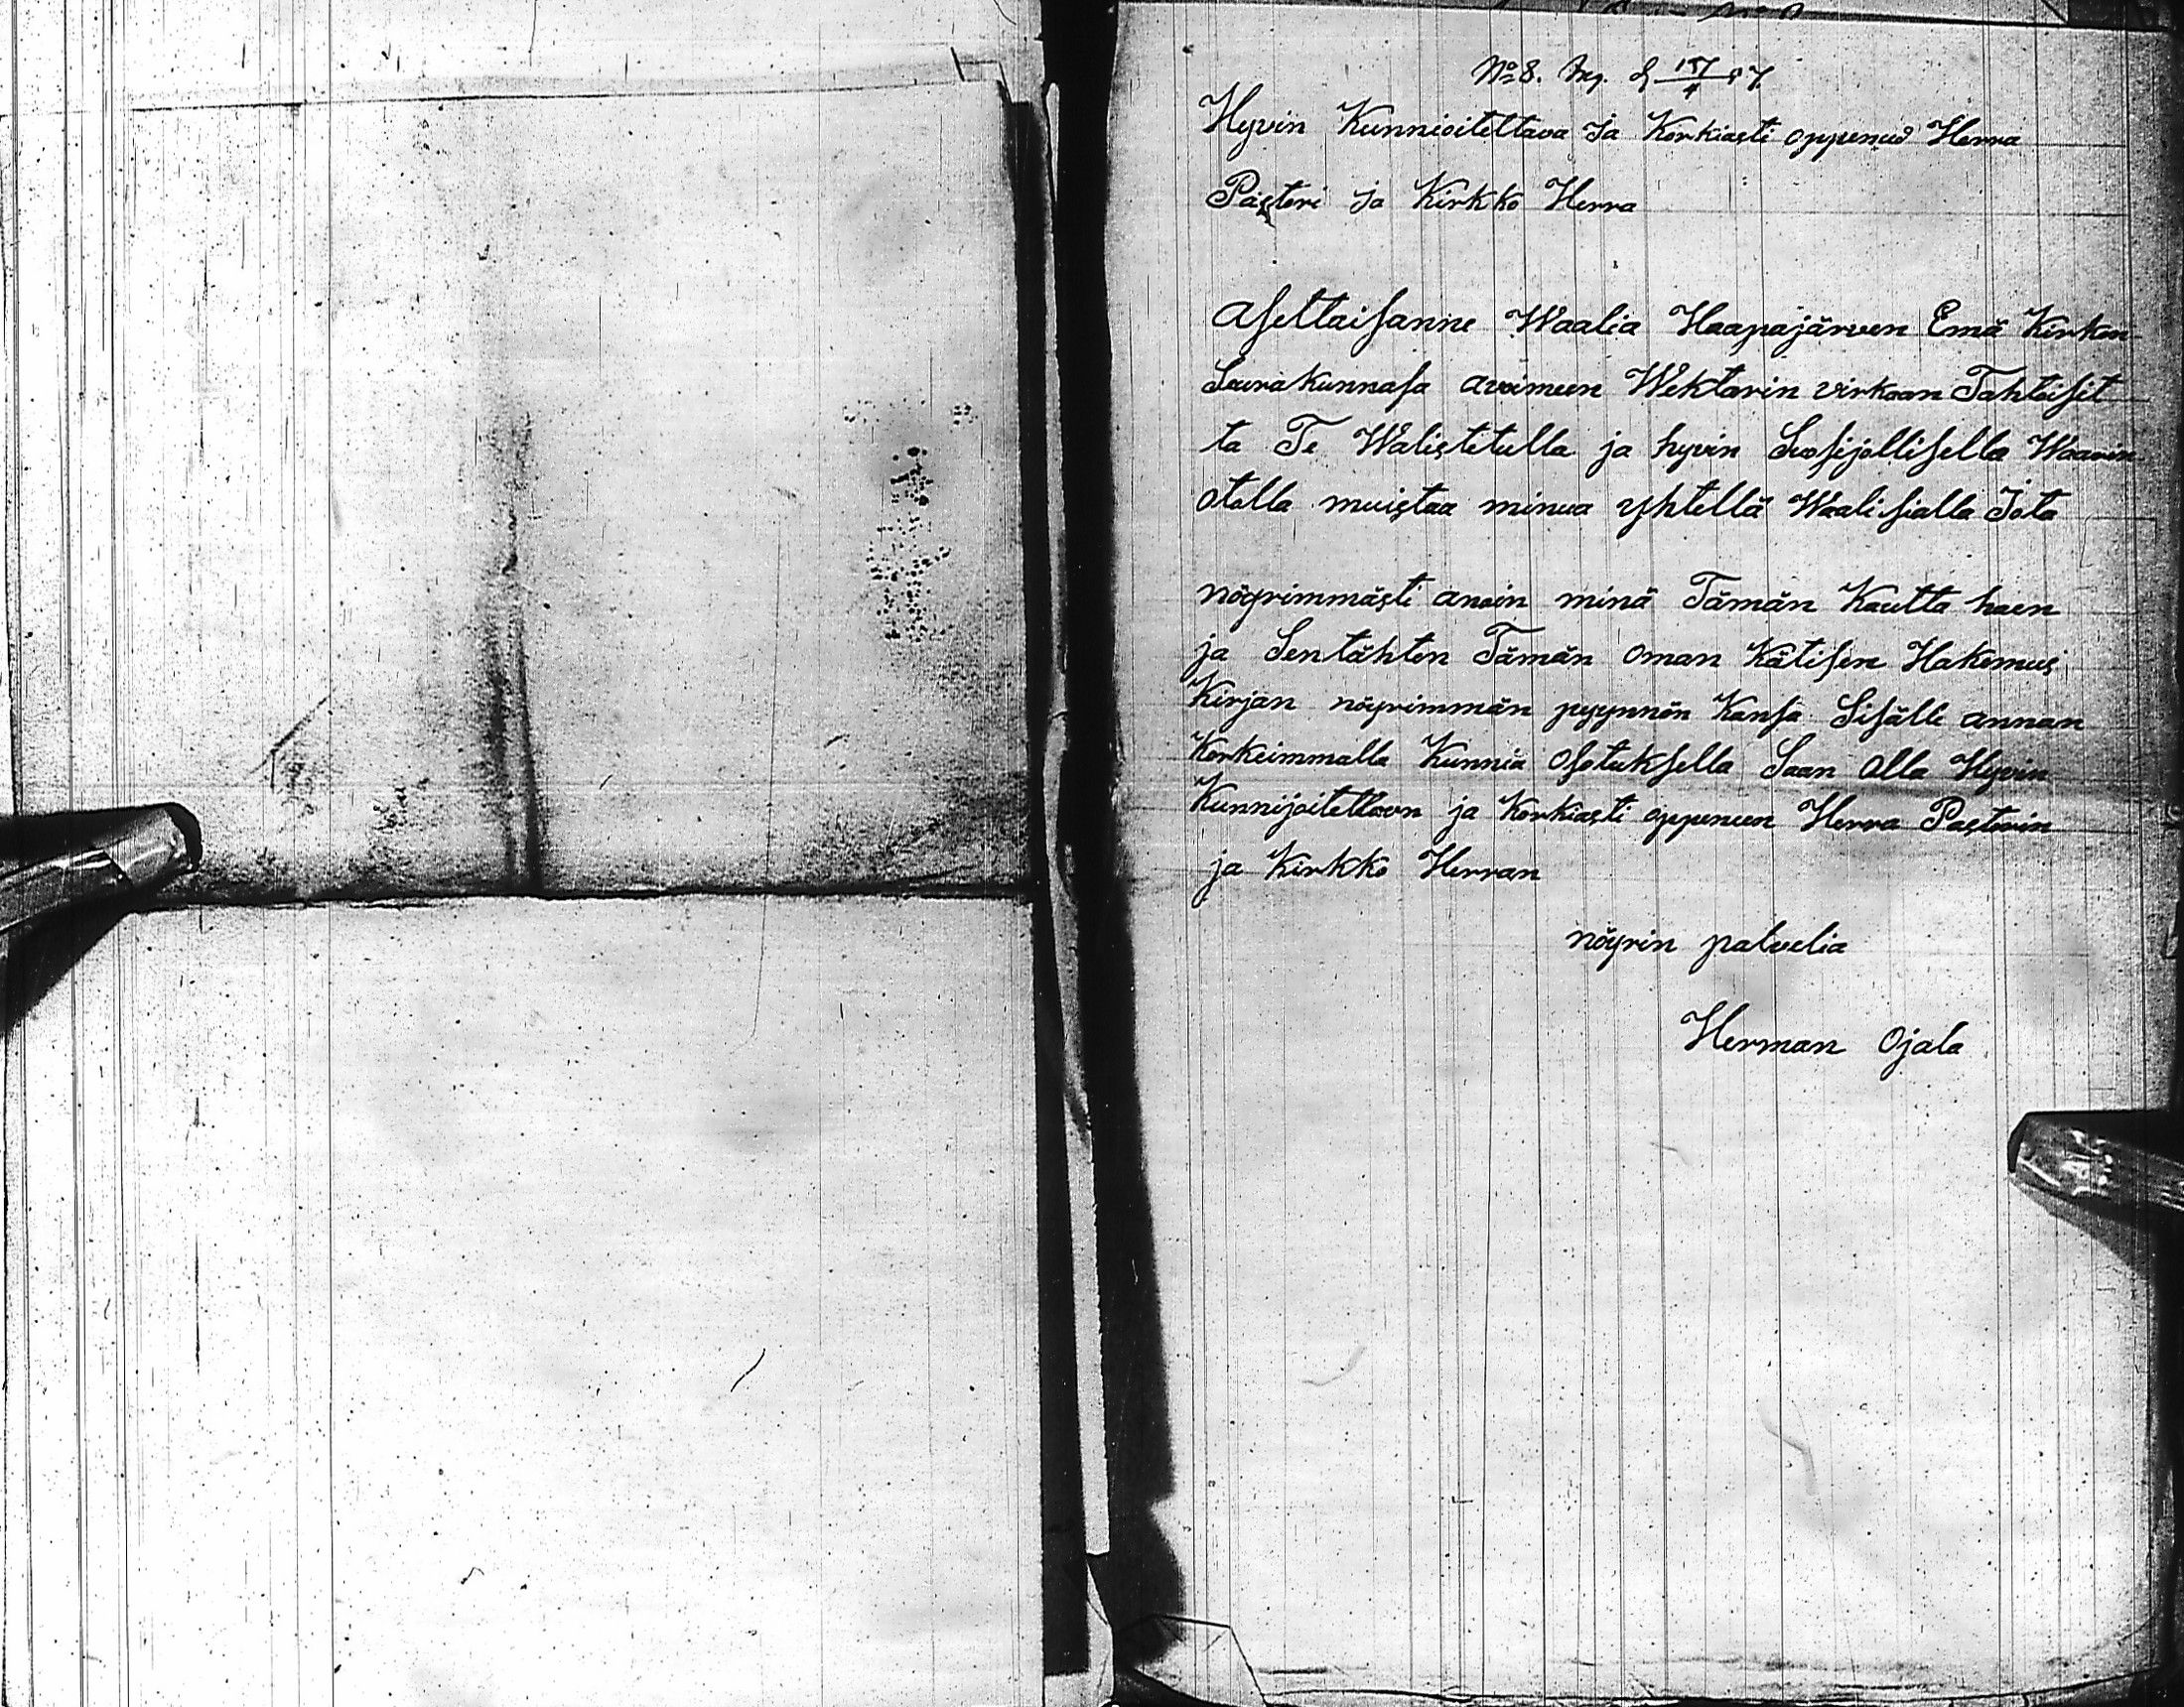 No 8. Ing. d 15/4 87.
Hyvin Kunnioitettava Ja Korkiasti oppenud Herra
Pastori Ja Kirkko Herra
Asettaisanne Waalia Haapajärven Emä Kirkon
Seurakunnasa avoimeen Wektarin virkaan Tahtoisit
ta Te Walistetulla ja hyvin Suosijollisella Waarin
otolla muistaa minua yhtellä Waali sialla Jota
nöyrimmästi anoin minä Tämän Kautta haen
ja Sentähten Tämän oman Kätisen Hakemus
Kirjan nöyrimmän pyynnön Kansa Sisälle annan
Korkeimmalla Kunnia Osotuksella Saan olla Hyvin
Kunnijoitettavn ja Korkiasti oppeneen Herra Pastorin
ja Kirkko Herran
nöyrin palvelia
Herman Ojala